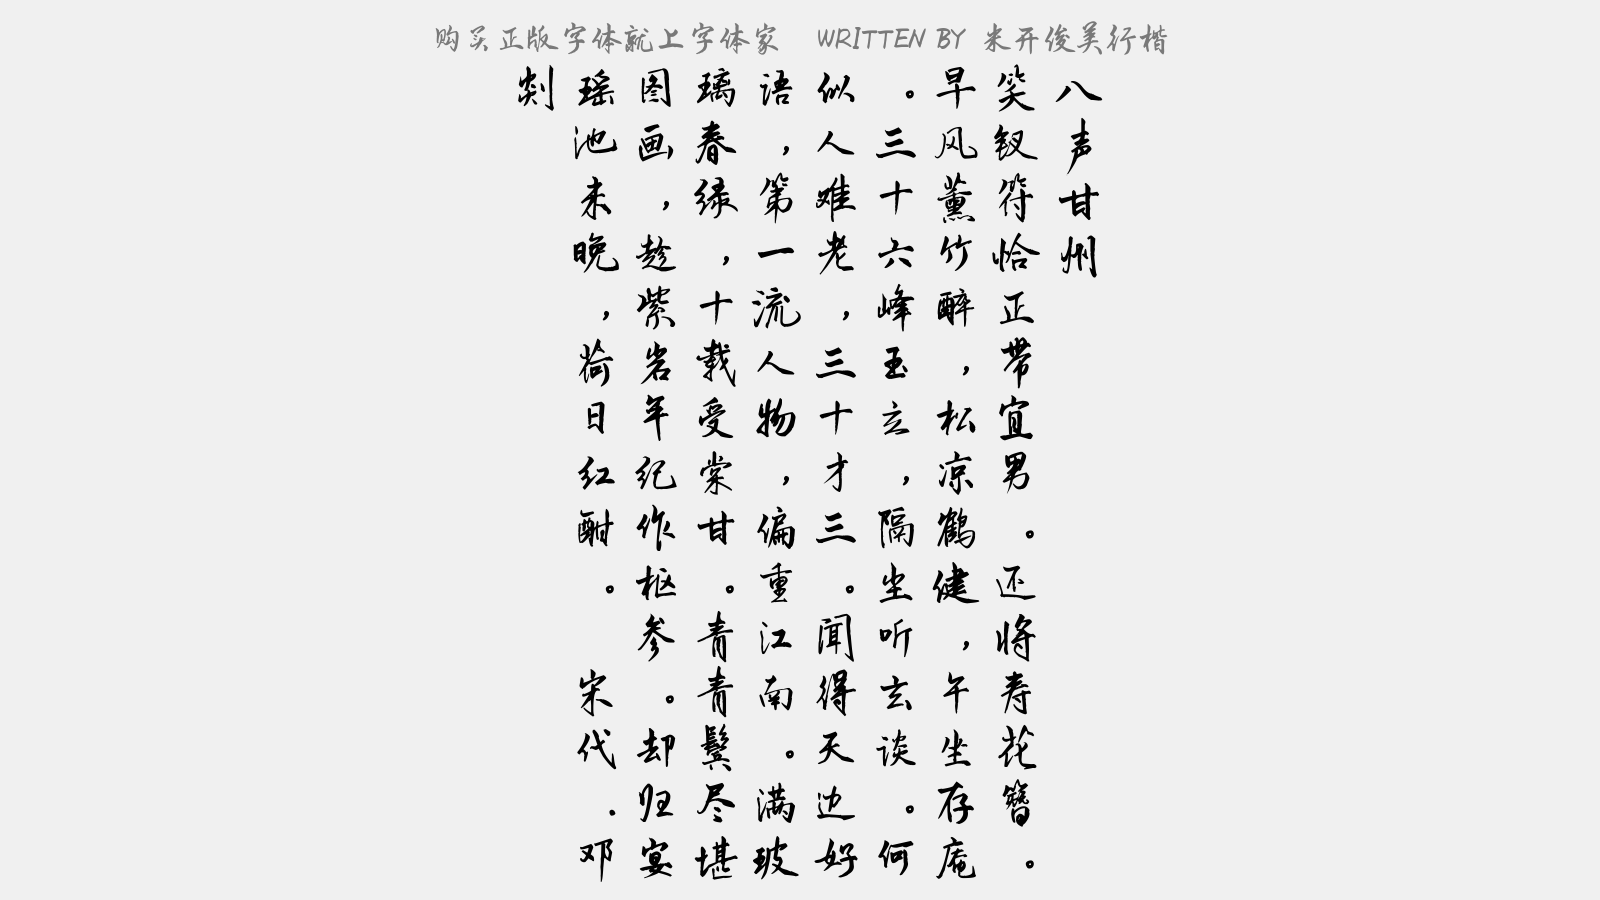 购买正版字体就上字体家 WRITTEN BY 米开俊美行楷
八声甘州
笑钗符恰正带宜男。还将寿花簪。
早风薰竹醉，松凉鹤健，午坐存庵
。三十六峰玉立，隔坐听玄谈。何
似人难老，三十才三。闻得天边好
语，第一流人物，偏重江南。满玻
璃春绿，十载受棠甘。青青鬓尽堪
图画，趁紫岩年纪作枢参。却归宴
瑶池未晚，荷日红酣。 宋代．邓
剡